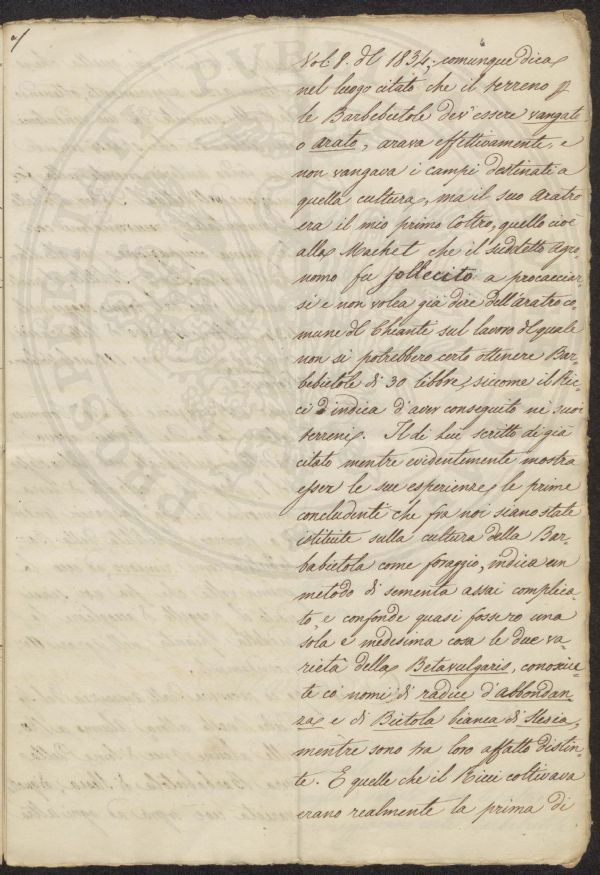 Vol. 8. del 1834; comunque dica
nel luogo citato che il terreno p
le Barbebietole dev'essere vangato
o arato, arava effettivamente, e
non vangava i campi destinati a
quella cultura, ma il suo aratro
era il mio primo Coltro, quello cioè
alla Machet che il suddetto Agro-
nomo fu sollecito a procacciar-
si e non volea già dire dell'aratro co-
mune del Chianti sul lavoro del quale
non si potrebbero certo ottenere Bar-
bebietole di 30 libbre, siccome il Ric-
ci indica d'aver conseguito ne' suoi
terreni. Il di Lui scritto di già
citato mentre evidentemente mostra
esser le sue esperienze le prime
concludenti che fra noi siano state
istituite sulla cultura della Bar-
babietola come foraggio, indica un
metodo di sementa assai complica-
to, e confonde quasi fossero una
sola e medesima cosa le due va-
rietà della Betavulgaris, conosciu-
te co' nomi di radice d'abbondan-
za e di Bietola bianca di Slesia,
mentre sono tra loro affatto distin-
te. E quelle che il Ricci coltivava
erano realmente la prima di
PROSPERITATI PUBL